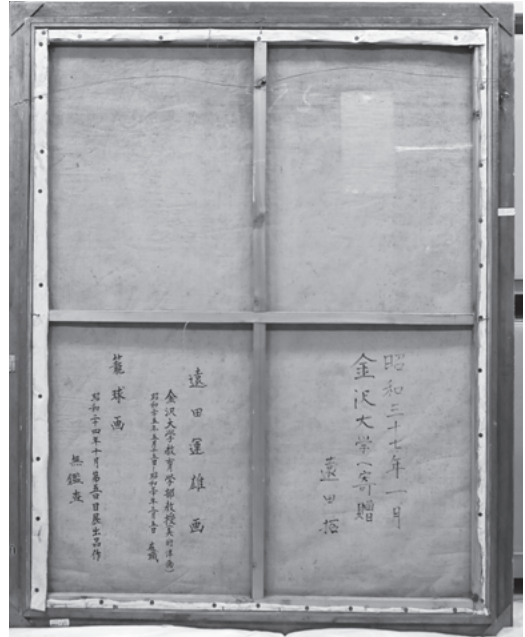 昭和三十七年一月
金沢大学へ寄贈
遠田
遠田運雄画
金沢大学教育学部教授美術(洋画)
籠球画
昭和二十四年十月第五回日展出品作
無鑑査